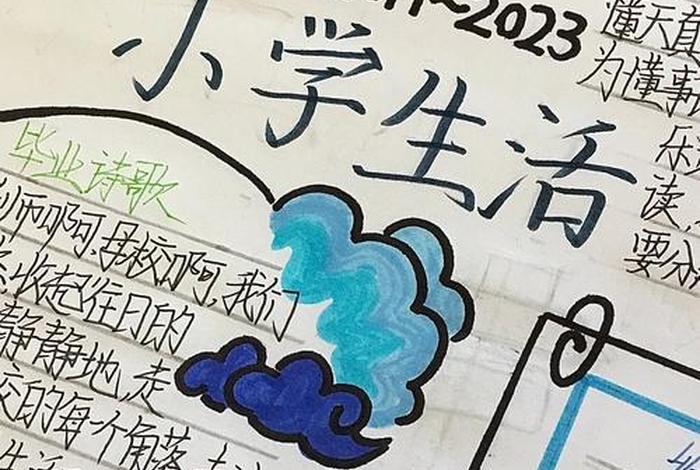 ~2023
小学生活
毕业诗歌
师啊啊,母校啊啊,我们
收起往日的
静静地,走
的每个角落
懂天真
为懂事
乐
读
要分